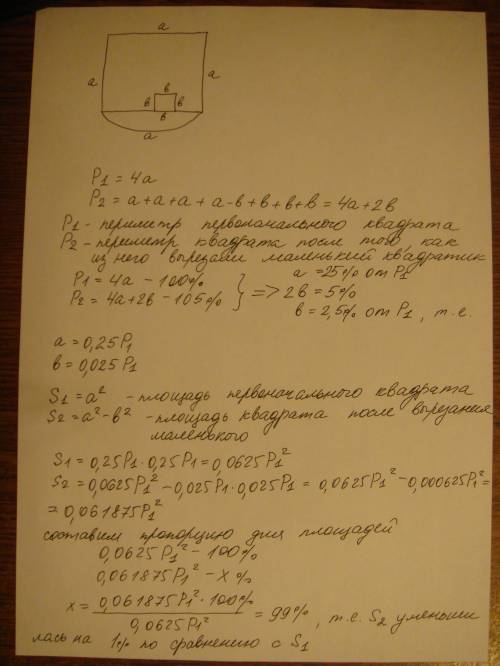 a
a
a
в
в
в
в
a
P1 = 4a
P2 = a+a+a+a-в+в+в+в = 4a+2в
P1 - периметр первоначального квадрата
P2 - периметр квадрата после того, как
из него вырезали маленький квадратик
P1 = 4a - 100% a = 25% от P1
P2 = 4a+2в - 105% } => 2в = 5%
в = 2,5% от P1, т.е.
a = 0,25P1
в = 0,025P1
S1 = a² - площадь первоначального квадрата
S2 = a²-в² - площадь квадрата после вырезания
маленького
S1 = 0,25P1 · 0,25P1 = 0,0625P1²
S2 = 0,0625P1² - 0,025P1 · 0,025P1 = 0,0625P1² - 0,000625P1² =
= 0,061875P1²
составим пропорцию для площадей
0,0625P1² - 100%
0,061875P1² - x%
x = 0,061875P1² · 100% / 0,0625P1² = 99%, т.е. S2 уменьши
лась на 1% по сравнению с S1